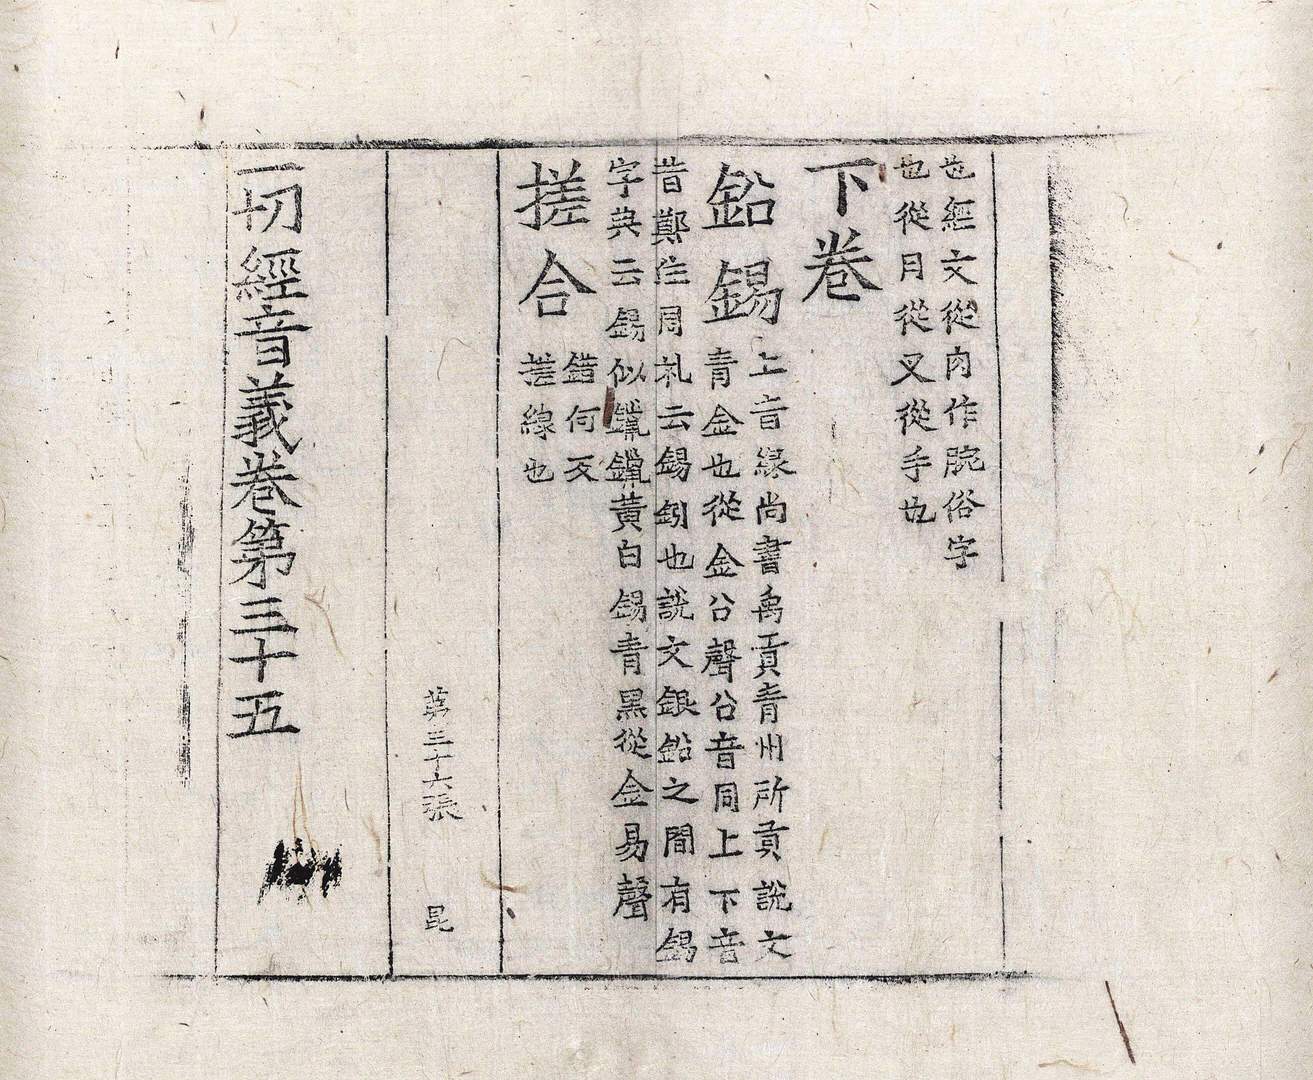 也經文從肉作脘俗字
也從月從叉從手也
下卷
鉛錫
上音緣尚書禹貢青州所貢說文
青金也從金㕣聲㕣音同上下音
昔鄭住周礼云錫鈏也說文銀鉛之間有錫
字典云錫似鑞鑞黃白錫青黑從金易聲
搓合
錯何反
搓線也
第三十六張 昆
一切經音義卷第三十五